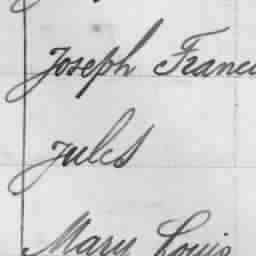 Joseph Franci
Jules
Mary Louis